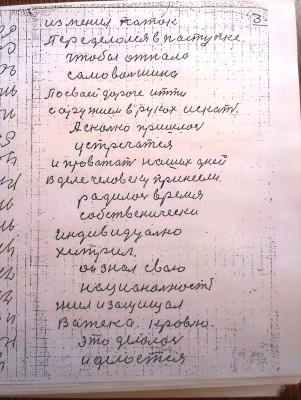 3
изменил каток
Переделался в паступке
чтобы отпало
самоволшина
По сваей дороге итти
с оружием в руках искать.
А сколко пришлос
устречатся
и проватат наших дней
В деле человеку принесли.
радилос время
собственически
индивидуално
хитрил.
он знал сваю
националност
жил и защищал
Ватека кровю.
это делалос
и делается